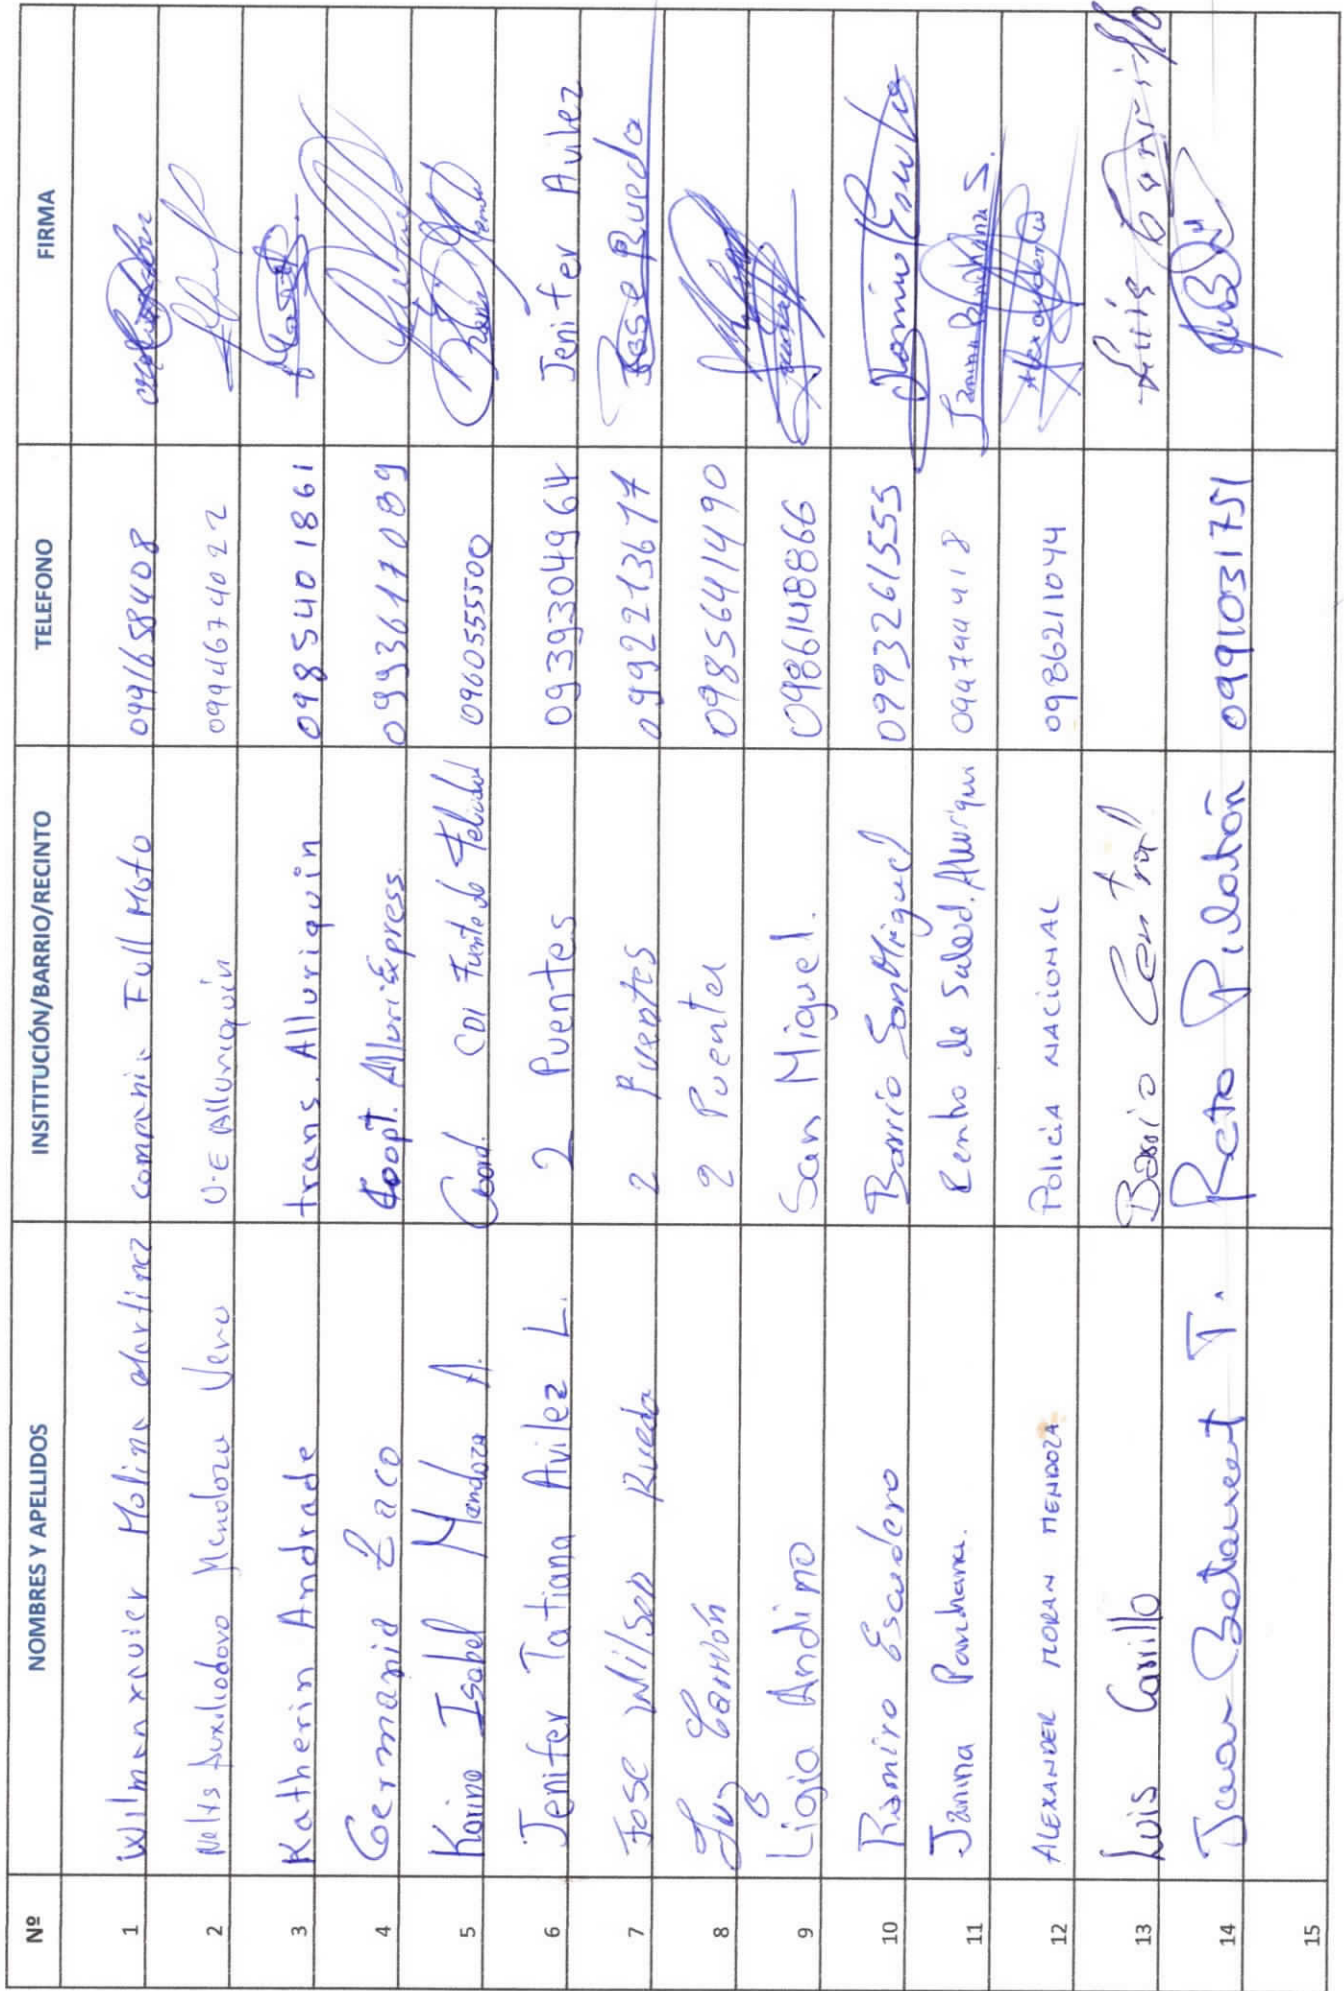 Nº NOMBRES Y APELLIDOS INSITITUCIÓN/BARRIO/RECINTO TELEFONO FIRMA
1 Wilmen xavier Molina Martinez compania Full Moto 0991658408
2 Nelys Auxiliadora Mendoza Vera U.E Alluriquín 0994674022
3 Katherin Andrade trans. Alluriquin 0985401861
4 Germania Coopt. AlluriExpress. 0993611089
5 Karina Isabel Mendoza A. Coord. CDI Fuente de Felicidad 0960555500
6 Jenifer Tatiana Avilez L. 2 Puentes 0939304964 Jenifer Avilez
7 Jose Wilson Rueda 2 Puentes 0992213677 Jose Rueda
8 Luz Carrión 2 Puentes 0985641490
9 Ligia Andino San Miguel. 0986148866
10 Ramiro Escudero Barrio San Miguel 0993261555
11 Janina Pandiana. Centro de Salud. Alluriquin
12 ALEXANDER MORAN MENDOZA POLICIA NACIONAL 0986211044
13 Luis Carrillo Barrio Central Luis Carrillo
14 Betancourt T. Rcto Pilatón 0991031751
15